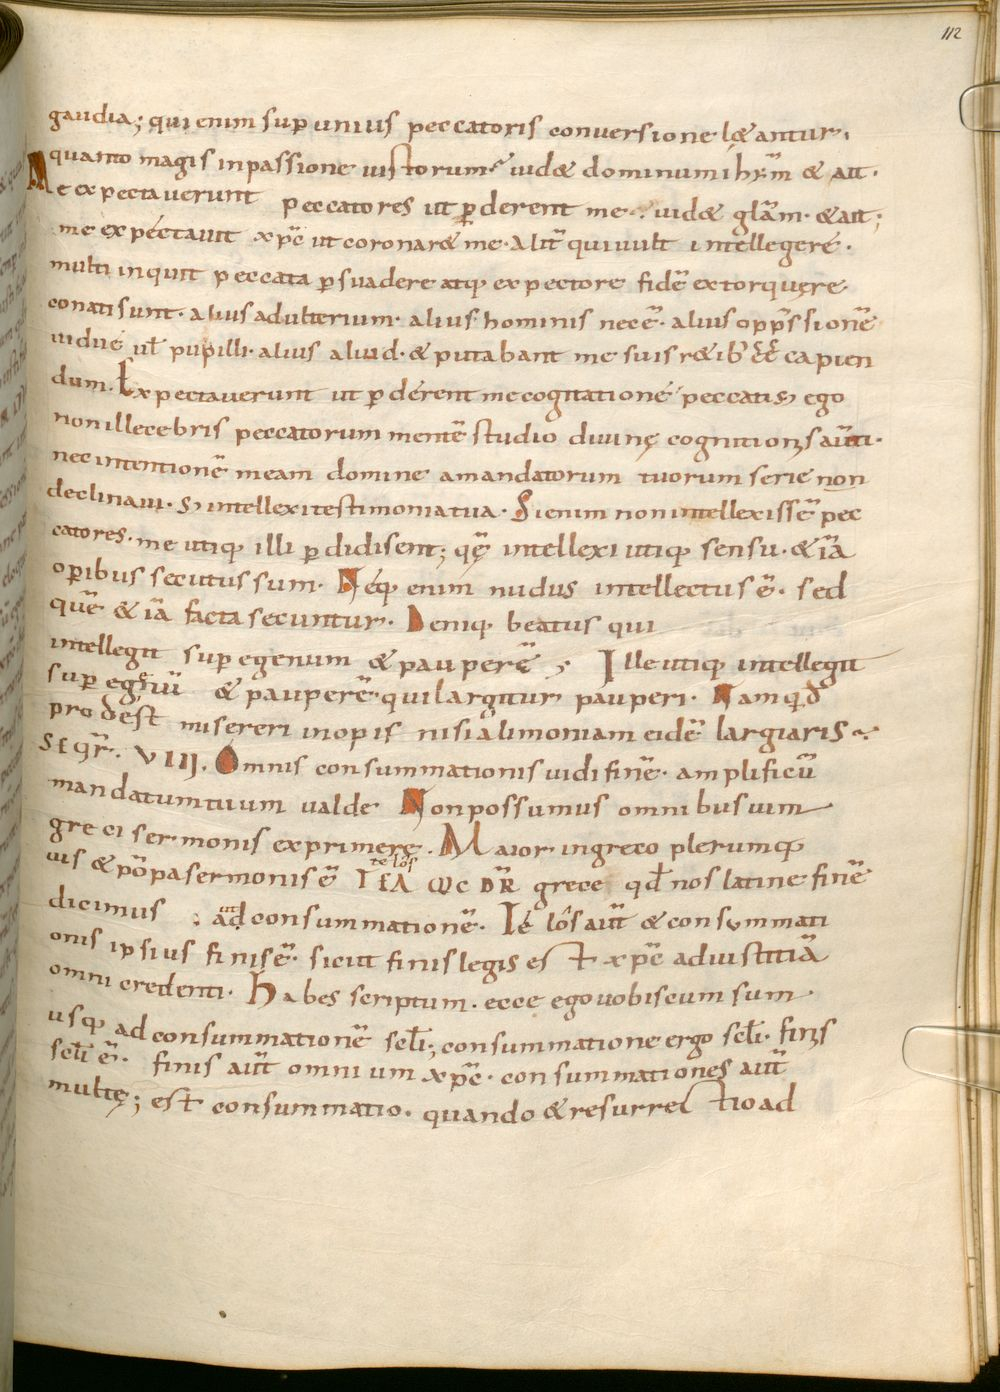 112
gaudia; qui enim sup̄ unius peccatoris conversione lętantur,
quanto magis inpassione iustorum; uidet dominum ihm̄ & ait.
Me expectaverunt peccatores ut p̄derent me. uidet glām. & ait;
me expectauit xp̄c ut coronaret me. Alit̄ qui uult intellegere.
multi inquit peccata p̄suadere atq; expectore fidē extorquere
conati sunt. alius adulterium. alius hominis necē. alius opp̄ssionē
uidue ul̄ pupilli. alius aliud. & putabant me suis retib; ēē capien
dum. Expectaverunt ut p̄derent me cogitatione peccatis; ego
non illecebris peccatorum mentē studio diuinę cognitionis aūti.
nec intentionē meam domine a mandatorum tuorum serie non
declinaui. s; intellexi testimonia tua. Si enim non intellexissē pec
catores. me utiq; illi p̄didisent; quę intellexi utiq; sensu. & iā
op̄ibus secutus sum. Neq; enim nudus intellectus ē. sed
quē & iā facta secuntur. Deniq; beatus qui
intellegit sup̄ egenum & pauperē; Ille utiq; intellegit
sup̄ egenū & pauperē. qui largitur pauperi. Nam qd̄
prodest misereri inopis nisi alimoniam eidē largiaris;
Seqr̄. VIII. Omnis consummationis uidi finē. amplificū
mandatum tuum valde Non possumus omnibus uim
greci sermonis exprimere. Maior in greco plerumq;
uis & pōpa sermonis ē telos ΤΕΛ ωc DR̄ grece qd̄ nos latine finē
dicimus ut ad consummationē. Te lôs aūt & consummati
onis ipsius finis ē. sicut finis legis est xp̄c ad iustitiā
omni credenti. Habes scriptum. ecce ego uobiscum sum
usq; ad consummationē scl̄i; consummatione ergo scl̄i. finis
scl̄i ē. finis aūt omnium xp̄c. consummationes aūt
multę; est consummatio. quando & resurrectio ad